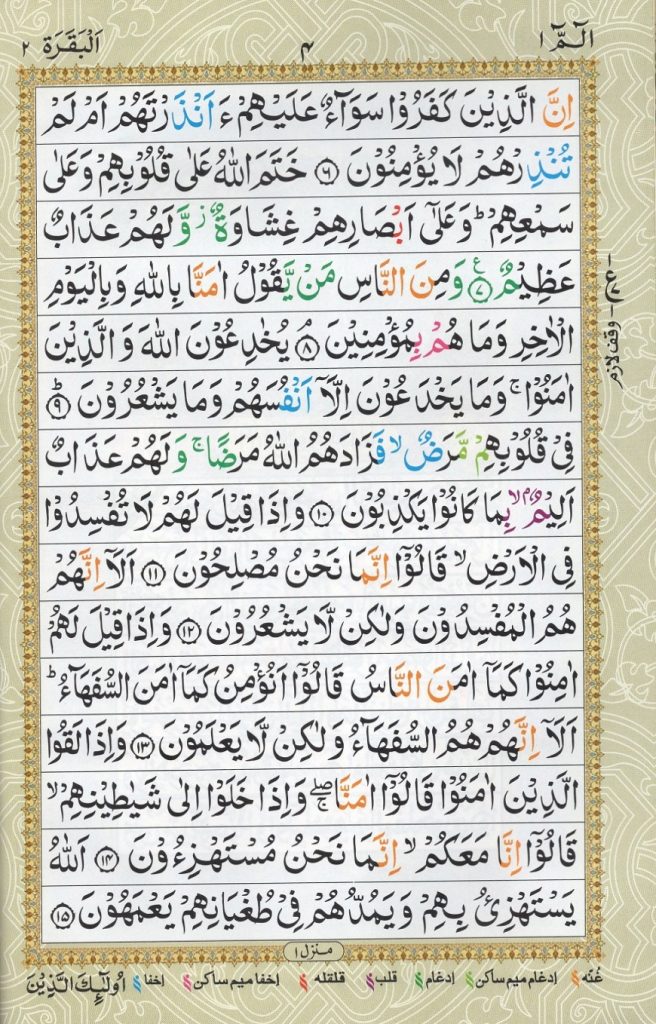 الٓمّٓ ۱ ۴ اَلْبَقَرَة ۲
اِنَّ الَّذِيْنَ كَفَرُوْا سَوَآءٌ عَلَيْهِمْ ءَاَنْذَرْتَهُمْ اَمْ لَمْ
تُنْذِرْهُمْ لَا يُؤْمِنُوْنَ ۶ خَتَمَ اللّٰهُ عَلٰى قُلُوْبِهِمْ وَعَلٰى
سَمْعِهِمْ ؕ وَعَلٰٓى اَبْصَارِهِمْ غِشَاوَةٌ ؗ وَّ لَهُمْ عَذَابٌ
عَظِيْمٌ ۷ ع وَمِنَ النَّاسِ مَنْ يَّقُوْلُ اٰمَنَّا بِاللّٰهِ وَبِالْيَوْمِ
الْاٰخِرِ وَمَا هُمْ بِمُؤْمِنِيْنَ ۘ ۸ يُخٰدِعُوْنَ اللّٰهَ وَ الَّذِيْنَ
اٰمَنُوْا ۚ وَمَا يَخْدَعُوْنَ اِلَّاۤ اَنْفُسَهُمْ وَمَا يَشْعُرُوْنَ ؕ ۹
فِىْ قُلُوْبِهِمْ مَّرَضٌ ۙ فَزَادَهُمُ اللّٰهُ مَرَضًا ۚ وَ لَهُمْ عَذَابٌ
اَلِيْمٌۢ ۙ بِمَا كَانُوْا يَكْذِبُوْنَ ۱۰ وَاِذَا قِيْلَ لَهُمْ لَا تُفْسِدُوْا
فِى الْاَرْضِ ۙ قَالُوْٓا اِنَّمَا نَحْنُ مُصْلِحُوْنَ ۱۱ اَلَآ اِنَّهُمْ
هُمُ الْمُفْسِدُوْنَ وَلٰكِنْ لَّا يَشْعُرُوْنَ ۱۲ وَاِذَا قِيْلَ لَهُمْ
اٰمِنُوْا كَمَآ اٰمَنَ النَّاسُ قَالُوْٓا اَنُؤْمِنُ كَمَآ اٰمَنَ السُّفَهَآءُ ؕ
اَلَآ اِنَّهُمْ هُمُ السُّفَهَآءُ وَلٰكِنْ لَّا يَعْلَمُوْنَ ۱۳ وَاِذَا لَقُوا
الَّذِيْنَ اٰمَنُوْا قَالُوْٓا اٰمَنَّا ۖۚ وَاِذَا خَلَوْا اِلٰى شَيٰطِيْنِهِمْ ۙ
قَالُوْٓا اِنَّا مَعَكُمْ ۙ اِنَّمَا نَحْنُ مُسْتَهْزِءُوْنَ ۱۴ اَللّٰهُ
يَسْتَهْزِئُ بِهِمْ وَيَمُدُّهُمْ فِىْ طُغْيَانِهِمْ يَعْمَهُوْنَ ۱۵
وقف لازم
منزل ۱
غُنّه ادغام میم ساکن ادغام قلب قلقله اخفا میم ساکن اخفا اُولٰٓئِكَ الَّذِيْنَ